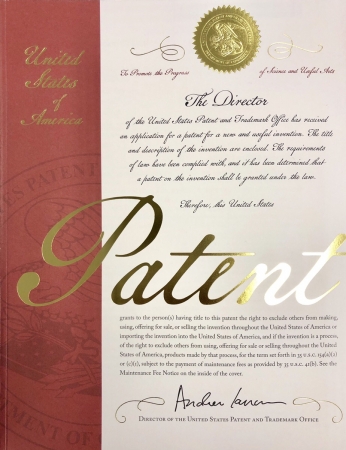 United
States
of
America
To Promote the Progress
of Science and Useful Arts
The Director
of the United States Patent and Trademark Office has received
an application for a patent for a new and useful invention. The title
and description of the invention are enclosed. The requirements
of law have been complied with, and it has been determined that
a patent on the invention shall be granted under the law.
Therefore, this United States
Patent
grants to the person(s) having title to this patent the right to exclude others from making,
using, offering for sale, or selling the invention throughout the United States of America or
importing the invention into the United States of America, and if the invention is a process,
of the right to exclude others from using, offering for sale or selling throughout the United
States of America, products made by that process, for the term set forth in 35 U.S.C. 154(a)(2)
or (c)(1), subject to the payment of maintenance fees as provided by 35 U.S.C. 41(b). See the
Maintenance Fee Notice on the inside of the cover.
Director of the United States Patent and Trademark Office